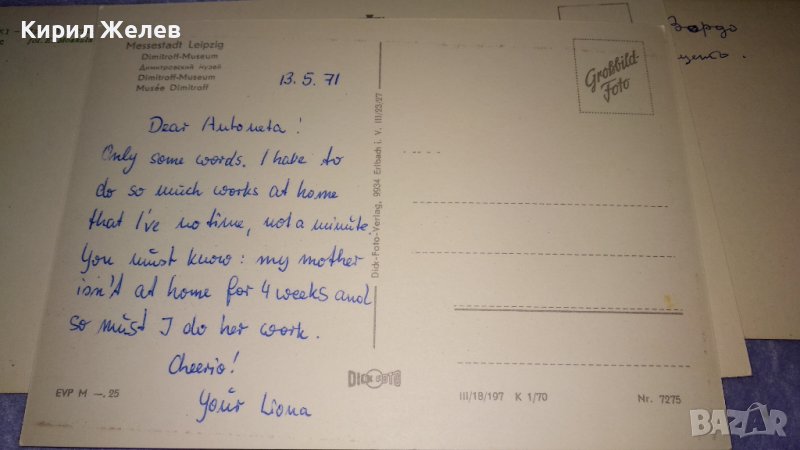 Кирил Желев
Messestadt Leipzig
Dimitroff-Museum
Димитровский музей
Dimitroff-Museum
Musée Dimitroff
13.5.71
Dear Antoneta!
Only some words. I have to
do so much works at home
that I've no time, not a minute.
You must know: my mother
isn't at home for 4 weeks and
so must I do her work.
Cheerio!
Your Liona
EVP M —.25
DICK FOTO
Dick-Foto-Verlag, 9934 Erlbach i. V. III/23/27
Großbild-
Foto
III/18/197 K 1/70
Nr. 7275
BAZAR
.bg